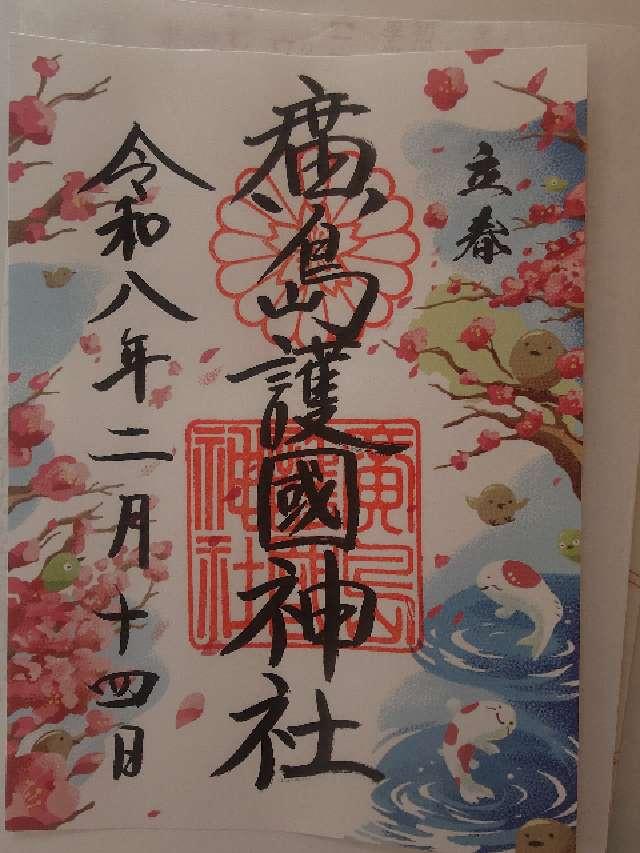 立春
廣島護國神社
令和八年二月十四日
廣島
護國
神社